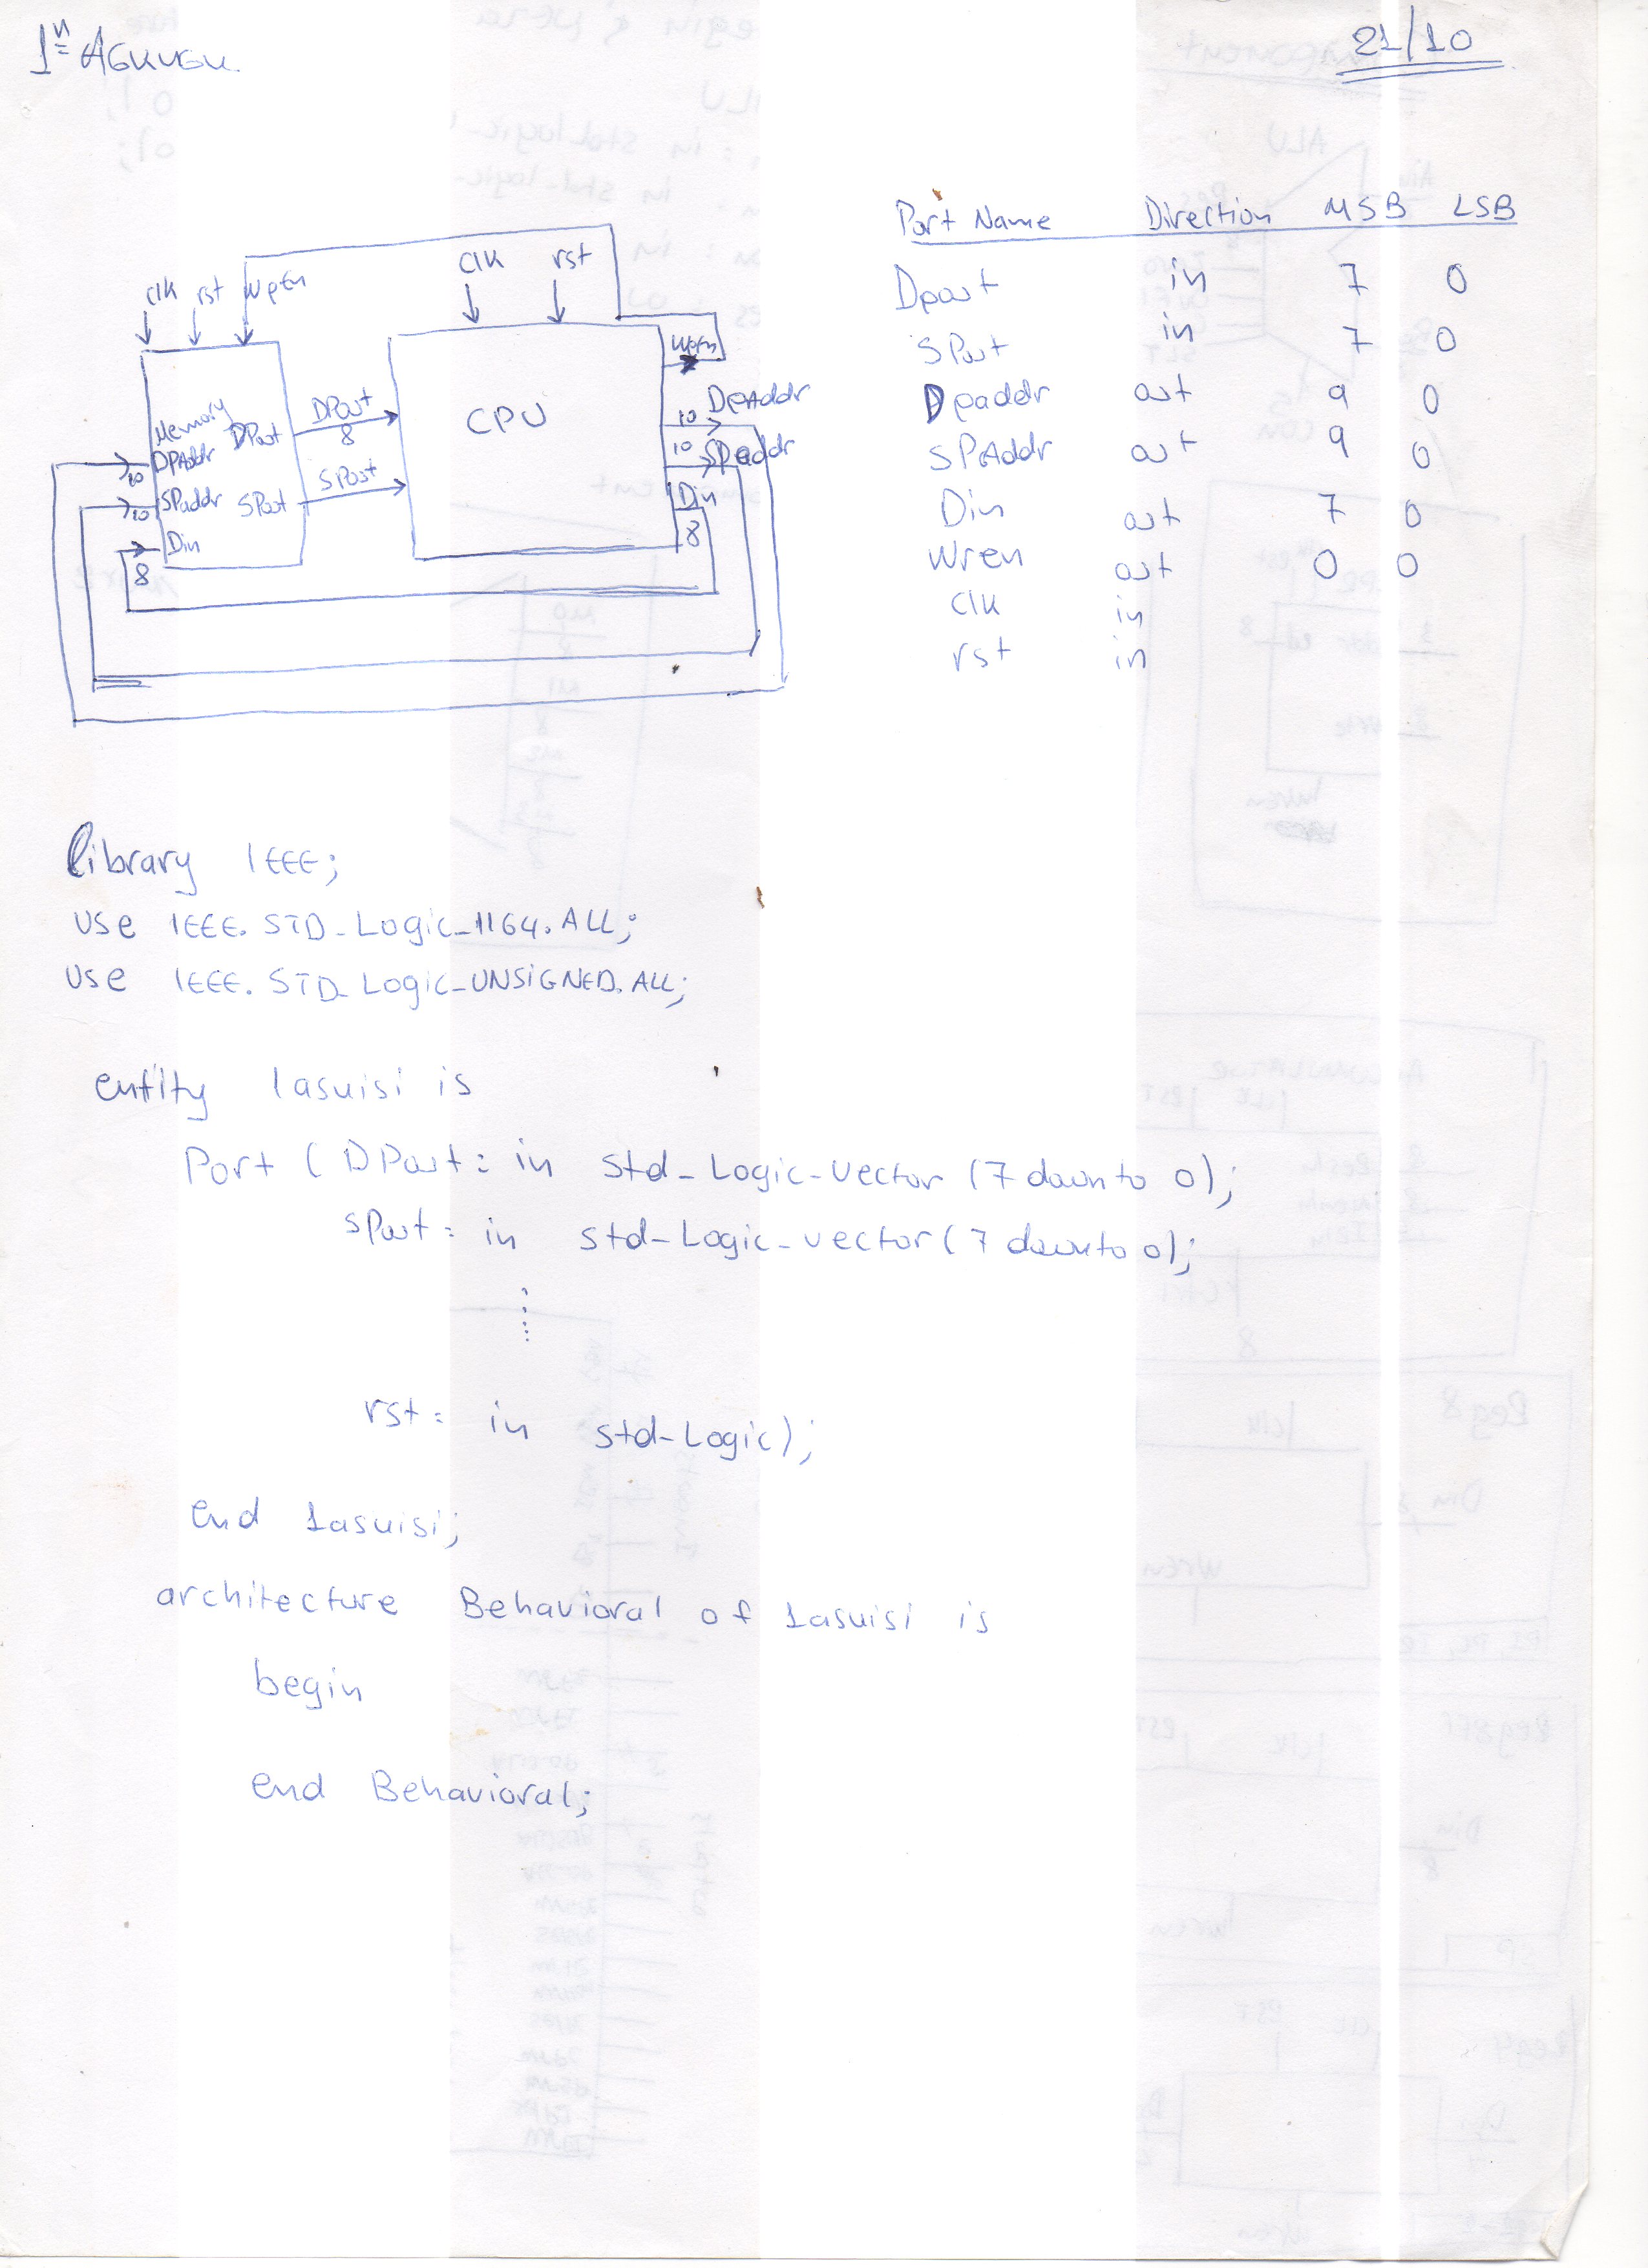 1η Άσκηση
21/10
clk rst WrEn
clk rst
WrEn
Memory
DPAddr
SPaddr
Din
DPout
SPout
DPout
8
SPout
CPU
10 DpAddr
10 SPaddr
Din
8
10
10
8
Port Name Direction MSB LSB
Dpout in 7 0
SPout in 7 0
Dpaddr out 9 0
SPAddr out 9 0
Din out 7 0
Wren out 0 0
clk in
rst in
library IEEE;
use IEEE.STD_Logic_1164.ALL;
use IEEE.STD_Logic_UNSIGNED.ALL;
entity 1askisi is
Port ( DPout: in std_Logic_vector (7 downto 0);
SPout: in std_Logic_vector (7 downto 0);
rst: in std_Logic);
end 1askisi;
architecture Behavioral of 1askisi is
begin
end Behavioral;